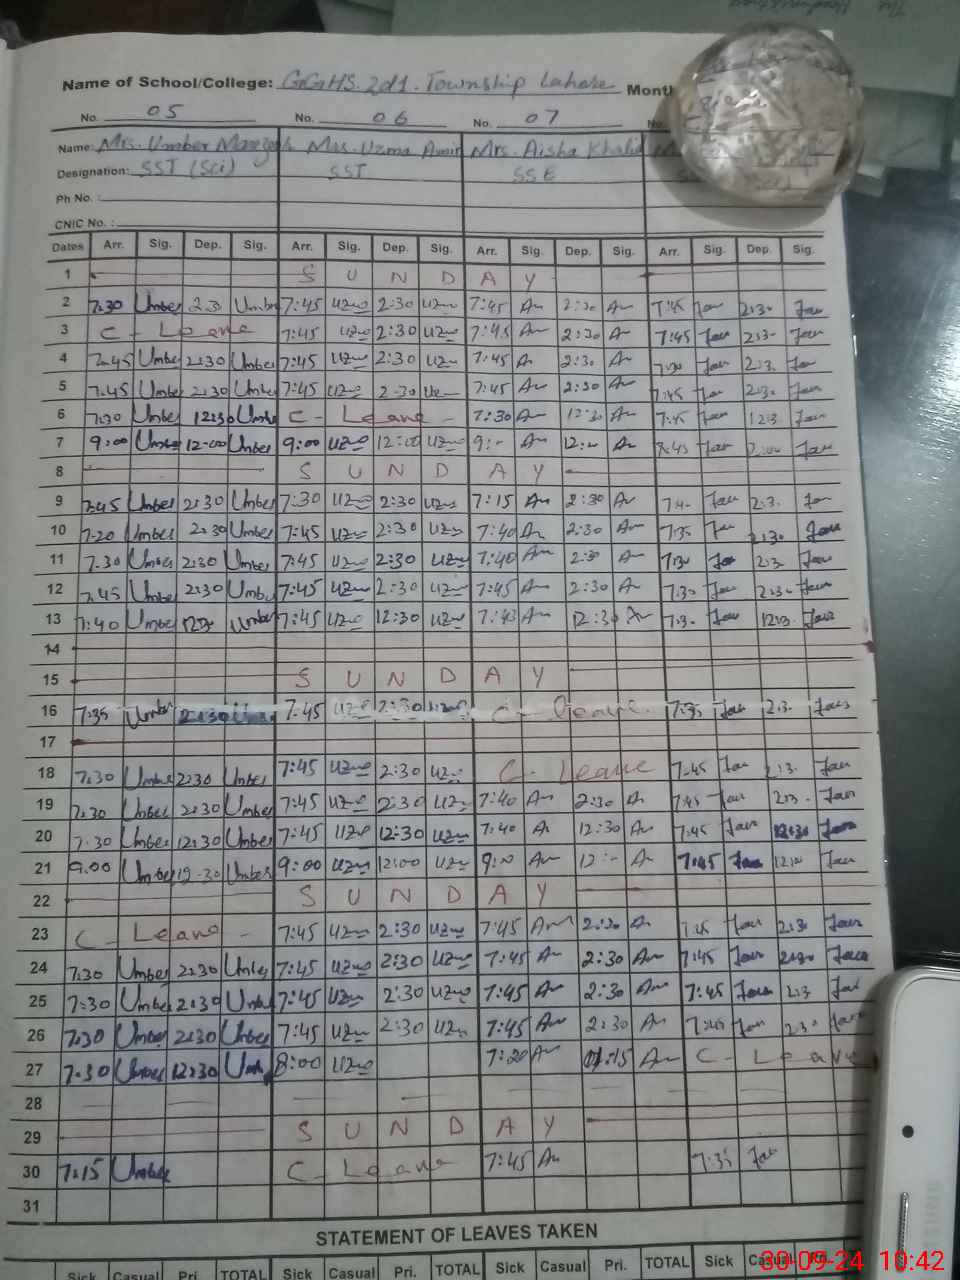 Name of School/College: GGHS. 2d1. Township Lahore Month
No. 05 No. 06 No. 07 No.
Name: Mrs. Umber Mrs. Uzma Amir Mrs. Aisha Khalid
Designation: SST (Sci) SST SSE
Ph No. :
CNIC No. :
Dates Arr. Sig. Dep. Sig. Arr. Sig. Dep. Sig. Arr. Sig. Dep. Sig. Arr. Sig. Dep. Sig.
1 S U N D A Y
2 7:30 Umber 2:30 Umber 7:45 uzma 2:30 uzma 7:45 An 2:30 An 7:45 2:30
3 C - Leave 7:45 uzma 2:30 uzma 7:45 An 2:30 An 7:45 2:3-
4 7:45 Umber 2:30 Umber 7:45 uzma 2:30 uzma 7:45 An 2:30 An 7:30 2:3.
5 7:45 Umber 2:30 Umber 7:45 uzma 2:30 7:45 An 2:30 An 7:45 2:3.
6 7:30 Umber 12:30 Umber C - Leave - 7:30 An 12:30 An 7:45 12:3
7 9:00 Umber 12:00 Umber 9:00 uzma 12:00 uzma 9:- An 12:- An 8:45
8 S U N D A Y
9 7:45 Umber 2:30 Umber 7:30 uzma 2:30 uzma 7:15 An 2:30 An 7:4- 2:3.
10 7:20 Umber 2:30 Umber 7:45 uzma 2:30 uzma 7:40 An 2:30 An 7:35 2:30
11 7:30 Umber 2:30 Umber 7:45 uzma 2:30 uzma 7:40 An 2:30 An 7:30 2:3-
12 7:45 Umber 2:30 Umber 7:45 uzma 2:30 uzma 7:45 An 2:30 An 7:30 2:30
13 7:40 Umber 12:30 Umber 7:45 uzma 12:30 uzma 7:43 An 12:30 An 7:3- 12:3-
14
15 S U N D A Y
16 7:35 Umber 2:30 Umber 7:45 uzma 2:30 uzma C - leave. 7:35 2:3-
17
18 7:30 Umber 2:30 Umber 7:45 uzma 2:30 uzma C - Leave 7:45 2:3-
19 7:30 Umber 2:30 Umber 7:45 uzma 2:30 uzma 7:40 An 2:30 An 7:45 2:3-
20 7:30 Umber 12:30 Umber 7:45 uzma 12:30 uzma 7:40 An 12:30 An 7:45 12:30
21 9:00 Umber 12:30 Umber 9:00 uzma 12:00 uzma 9:00 An 12:- An 7:45 12:00
22 S U N D A Y
23 C - Leave - 7:45 uzma 2:30 uzma 7:45 An 2:30 An 7:45 2:30
24 7:30 Umber 2:30 Umber 7:45 uzma 2:30 uzma 7:45 An 2:30 An 7:45 2:30
25 7:30 Umber 2:30 Umber 7:45 uzma 2:30 uzma 7:45 An 2:30 An 7:45 2:3
26 7:30 Umber 2:30 Umber 7:45 uzma 2:30 uzma 7:45 An 2:30 An 7:45 2:30
27 7:30 Umber 12:30 Umber 8:00 uzma 7:20 An An C - Leave
28
29 S U N D A Y
30 7:15 Umber C - Leave 7:45 An 7:35
31
STATEMENT OF LEAVES TAKEN
Sick Casual Pri. TOTAL Sick Casual Pri. TOTAL Sick Casual Pri. TOTAL Sick Casual Pri.
30-09-24 10:42